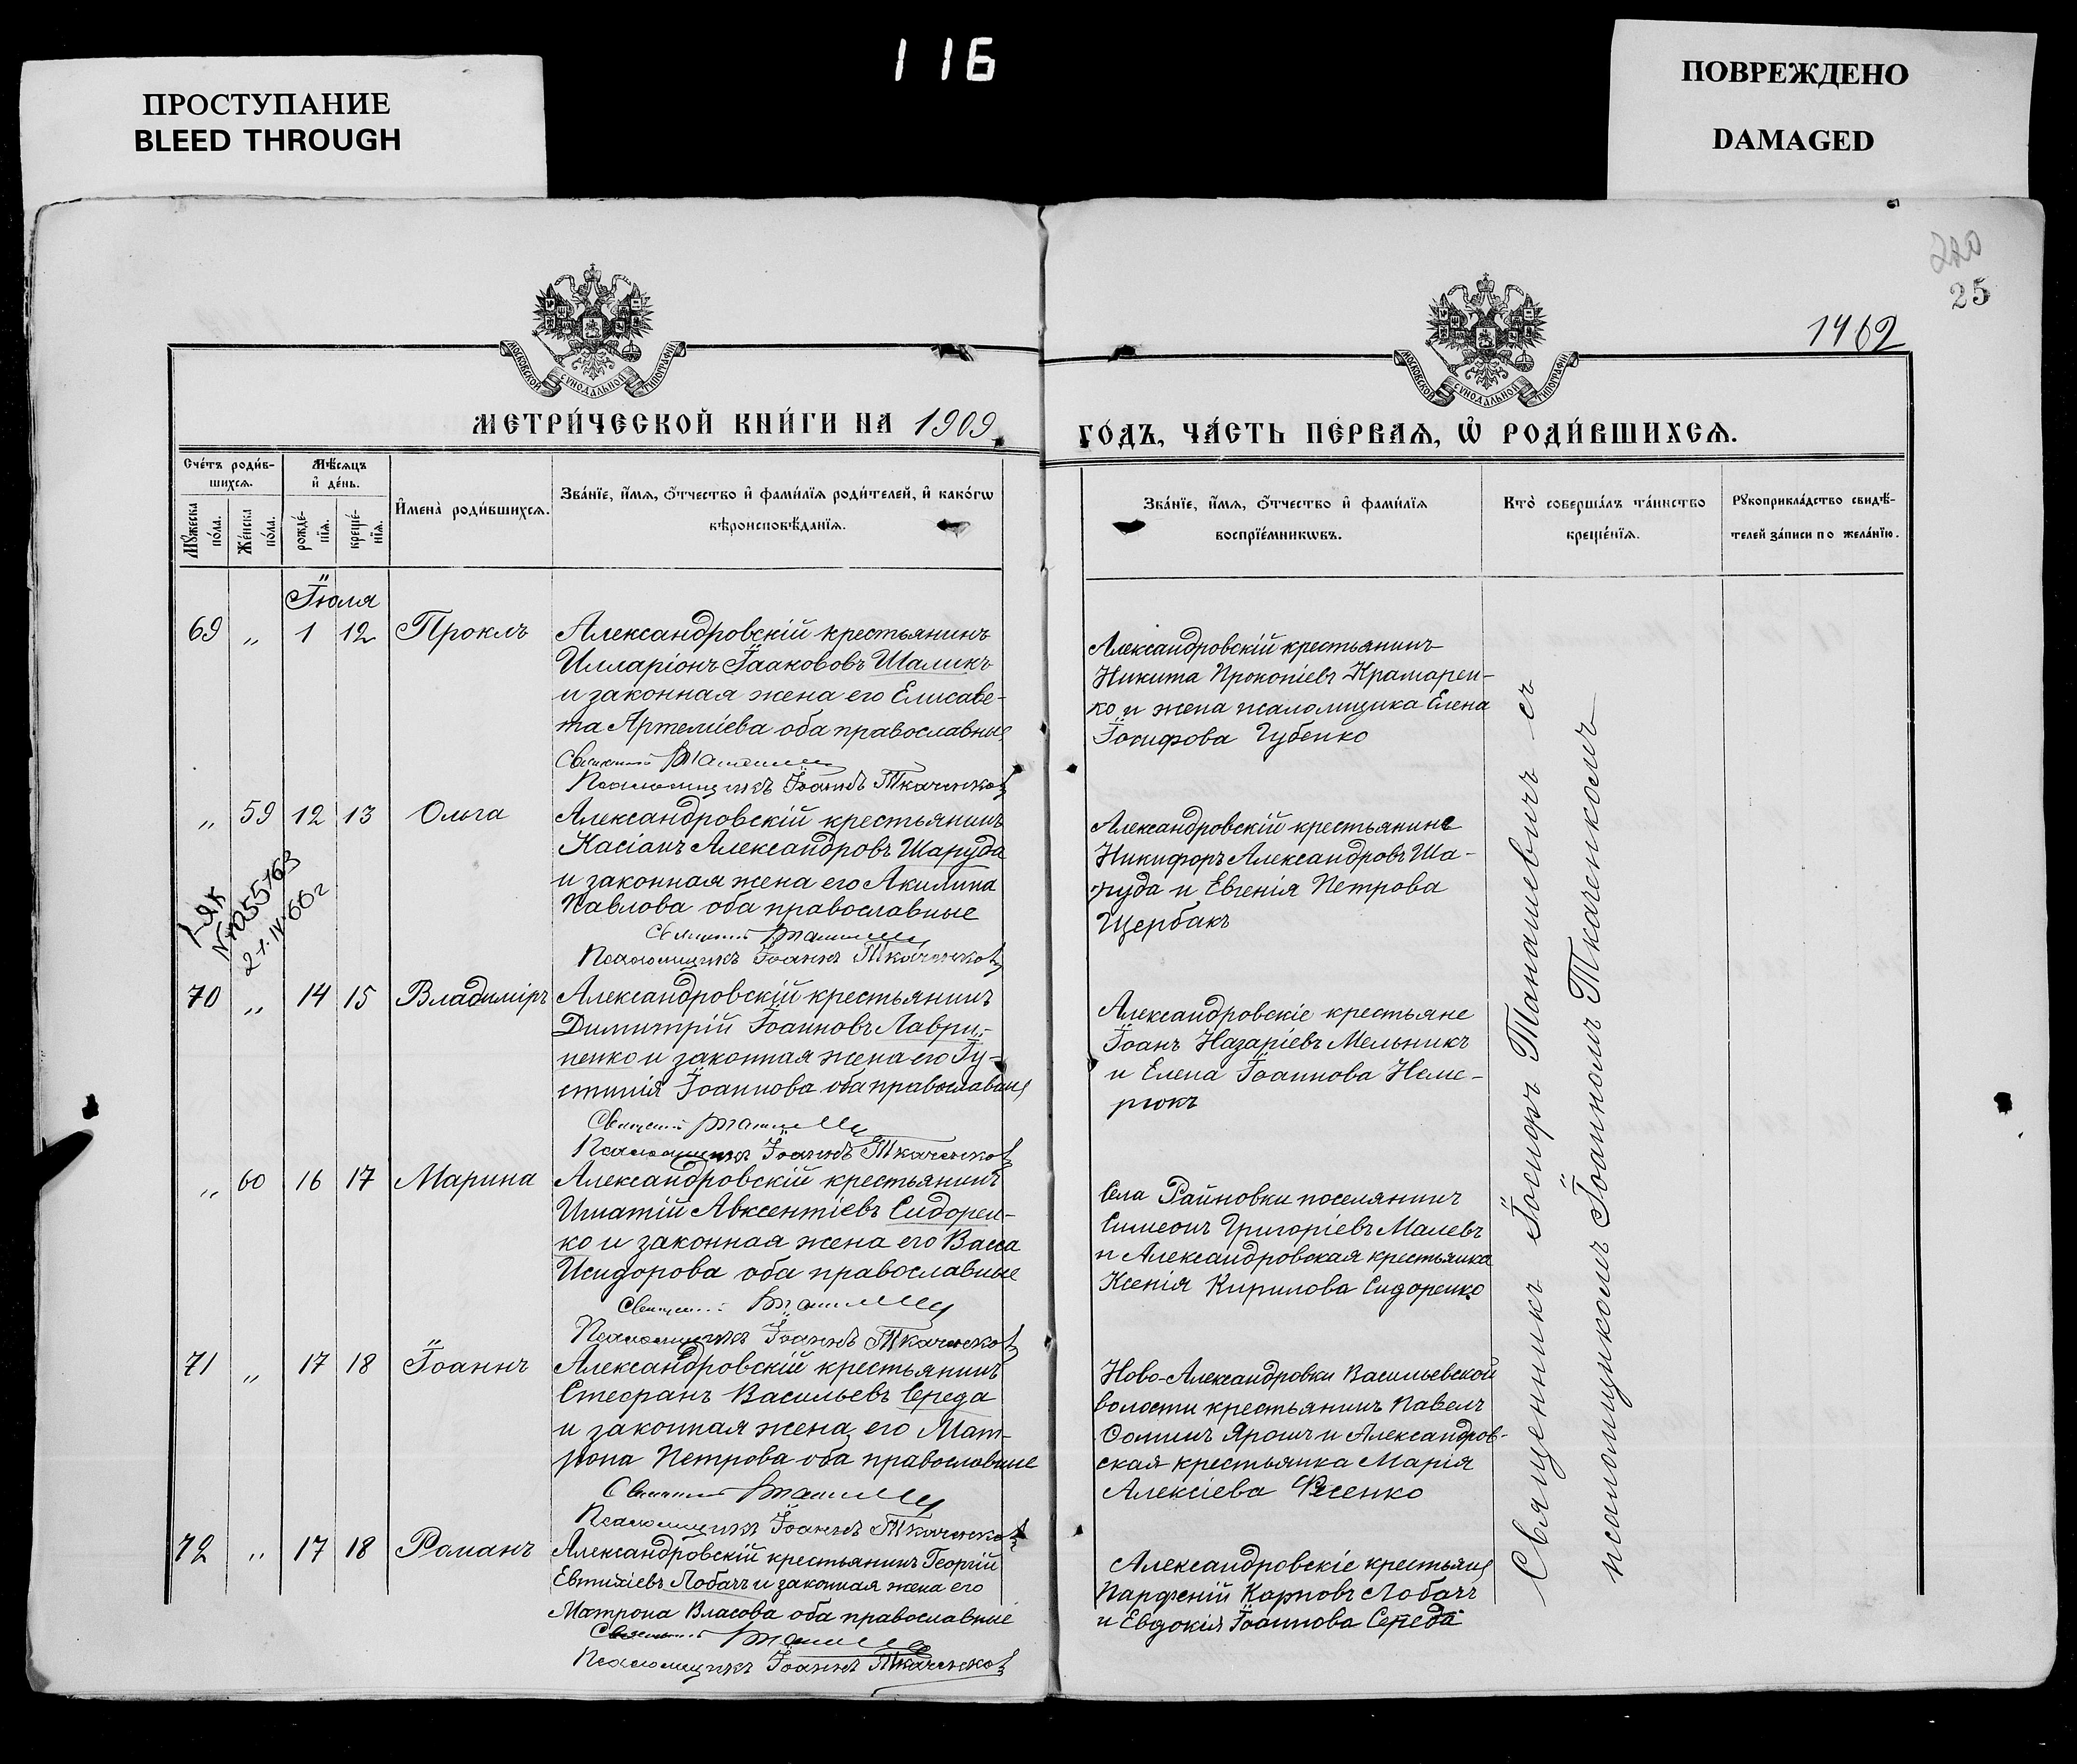 116
ПРОСТУПАНИЕ
BLEED THROUGH
ПОВРЕЖДЕНО
DAMAGED
220
25
1462
МОСКОВСКОЙ СѴНОДАЛЬНОЙ ТИПОГРАФІИ
МОСКОВСКОЙ СѴНОДАЛЬНОЙ ТИПОГРАФІИ
МЕТРИ́ЧЕСКОЙ КНИ́ГИ НА 1909
ГО́ДЪ, ЧА́СТЬ ПЕ́РВАѦ, Ѽ РОДИ́ВШИХСѦ.
Сче́тъ роди́в-
шихсѧ.
Мꙋ́жеска по́ла.
Же́нска по́ла.
Мѣ́сѧцъ
и҆ де́нь.
рожде́-
нїѧ.
креще́-
нїѧ.
И҆мена̀ роди́вшихсѧ.
Зва́нїе, и҆́мѧ, ѻ҆́тчество и҆ фами́лїѧ роди́телей, и҆ како́гѡ
вѣроисповѣ́данїѧ.
Зва́нїе, и҆́мѧ, ѻ҆́тчество и҆ фами́лїѧ
воспрїе́мникѡвъ.
Кто̀ соверша́лъ та́инство
креще́нїѧ.
Рꙋкоприкла́дство свидѣ́-
телей за́писи по жела́нїю.
Іюля
69 „ 1 12 Проклъ
Александровскій крестьянинъ
Илларіонъ Іаакововъ Шаликъ
и законная жена его Елисаве-
та Артеміева оба православные
Священникъ Танашевичъ
Псаломщикъ Іоаннъ Ткаченко
Александровскій крестьянинъ
Никита Прокопіевъ Крамарен-
ко и жена псаломщика Елена
Іосифова Губенко
„ 59 12 13 Ольга
Александровскій крестьянинъ
Касіанъ Александровъ Шаруда
и законная жена его Акилина
Павлова оба православные
Священникъ Танашевичъ
Псаломщикъ Іоаннъ Ткаченко
Александровскій крестьянинъ
Никифоръ Александровъ Ша-
руда и Евгенія Петрова
Щербакъ
I-ЯК
№ 055763
21.IV.66 г
70 „ 14 15 Владиміръ
Александровскій крестьянинъ
Димитрій Іоанновъ Лаври-
ненко и законная жена его Іу-
стинія Іоаннова оба православные
Священникъ Танашевичъ
Псаломщикъ Іоаннъ Ткаченко
Александровскіе крестьяне
Іоанъ Назаріевъ Мельникъ
и Елена Іоаннова Неме-
рюкъ
„ 60 16 17 Марина
Александровскій крестьянинъ
Игнатій Авксентіевъ Сидорен-
ко и законная жена его Васса
Исидорова оба православные
Священникъ Танашевичъ
Псаломщикъ Іоаннъ Ткаченко
Села Райновки поселянинъ
Симеонъ Григоріевъ Малевъ
и Александровская крестьянка
Ксенія Кирилова Сидоренко
71 „ 17 18 Іоаннъ
Александровскій крестьянинъ
Стефанъ Васильевъ Середа
и законная жена его Мат-
рона Петрова оба православные
Священникъ Танашевичъ
Псаломщикъ Іоаннъ Ткаченко
Ново-Александровки Васильевской
волости крестьянинъ Павелъ
Ѳоминъ Ярошъ и Александров-
ская крестьянка Марія
Алексіева
72 „ 17 18 Романъ
Александровскій крестьянинъ Георгій
Евтихіевъ Лобачъ и законная жена его
Матрона Власова оба православные
Священникъ Танашевичъ
Псаломщикъ Іоаннъ Ткаченко
Александровскіе крестьяне
Парфеній Карповъ Лобачъ
и Евдокія Іоаннова Середа
Священникъ Іосифъ Танашевичъ съ
псаломщикомъ Іоанномъ Ткаченкомъ